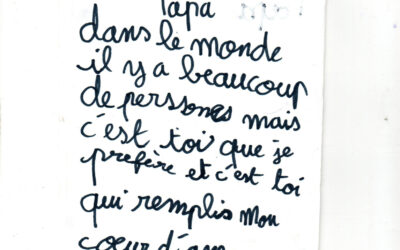 Papa
dans le monde
il y a beaucoup
de personnes mais
c'est toi que je
préfère et c'est toi
qui remplis mon
cœur d'am